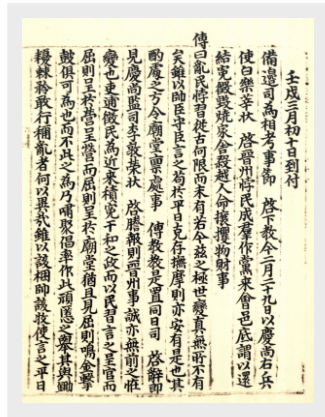 壬戌三月初十日到付
備邊司爲相考事節 啓下敎今二月二十九日以慶尙右兵
使白樂莘狀 啓晉州將民成羣作黨來會邑底謂以還
結寃徵毁燒家舍殺越人命攘攫物財事
傳曰亂民悖習從古何限而未有若今玆之極世變眞無所不有
矣雖以帥臣守臣言之苟於平日克存撫摩則亦安有是也其
酌處之方今廟堂稟處事 傳敎敎是置同日司 啓辭卽
見慶尙監司李敦榮狀 啓謄報則晉州事誠亦無前之恠
變也吏逋徵民爲近來積寃干和之政而以民習言之呈官而
屈則呈於營呈營而屈則呈於廟堂猶且見屈則鳴金擊
皷俱可爲也而不此之爲乃嘯聚倡率作此頑慝之擧其與鋤
耰棘矜敢行稱亂者何以異哉雖以該梱帥該牧使言之平日